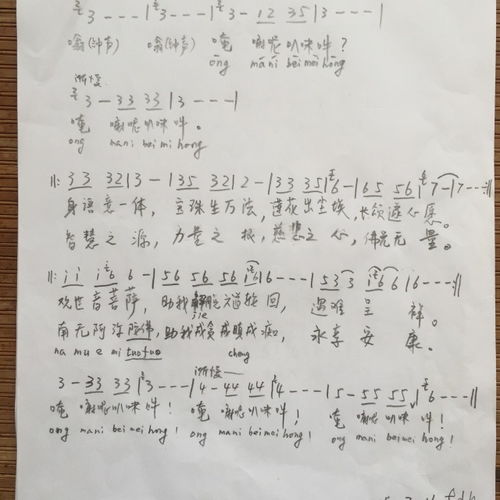 3 - - - | 3 - - - | 3 - 12 35 | 3 - - - |
嗡(钟声) 嗡(钟声) 唵 嘛呢叭咪吽?
ōng māni bēi mēi hōng
渐慢
3 - 33 33 | 3 - - - |
唵 嘛呢叭咪吽。
ong mani bei mi hong
‖: 33 32 | 3 - | 35 32 | 2 - | 33 35 | 6 - | 65 56 | 7 - | 7 - - :‖
身语意一体, 宝珠生万法, 莲花出尘埃, 长颂遂心愿。
智慧之源, 力量之 慈悲之心, 佛光无量。
‖: i i i 6 6 - | 56 56 56 i6 | 6 - - - | 5 3 3 i6 6 | 6 - - :‖
观世音菩萨, 助我解脱六道轮回, 遇难呈祥。
jie
南无阿弥陀佛, 助我戒贪戒嗔戒痴, 永享安康。
na mu e mi tuo fuo cheng
渐慢
3 - 33 33 | 3 - - - | 4 - 44 44 | 4 - - - | 5 - 55 55 | 6 - - - ‖
唵 嘛呢叭咪吽! 唵 嘛呢叭咪吽! 唵 嘛呢叭咪吽!
ong mani bei mei hong! ong mani bei mei hong! ong mani bei mei hong!